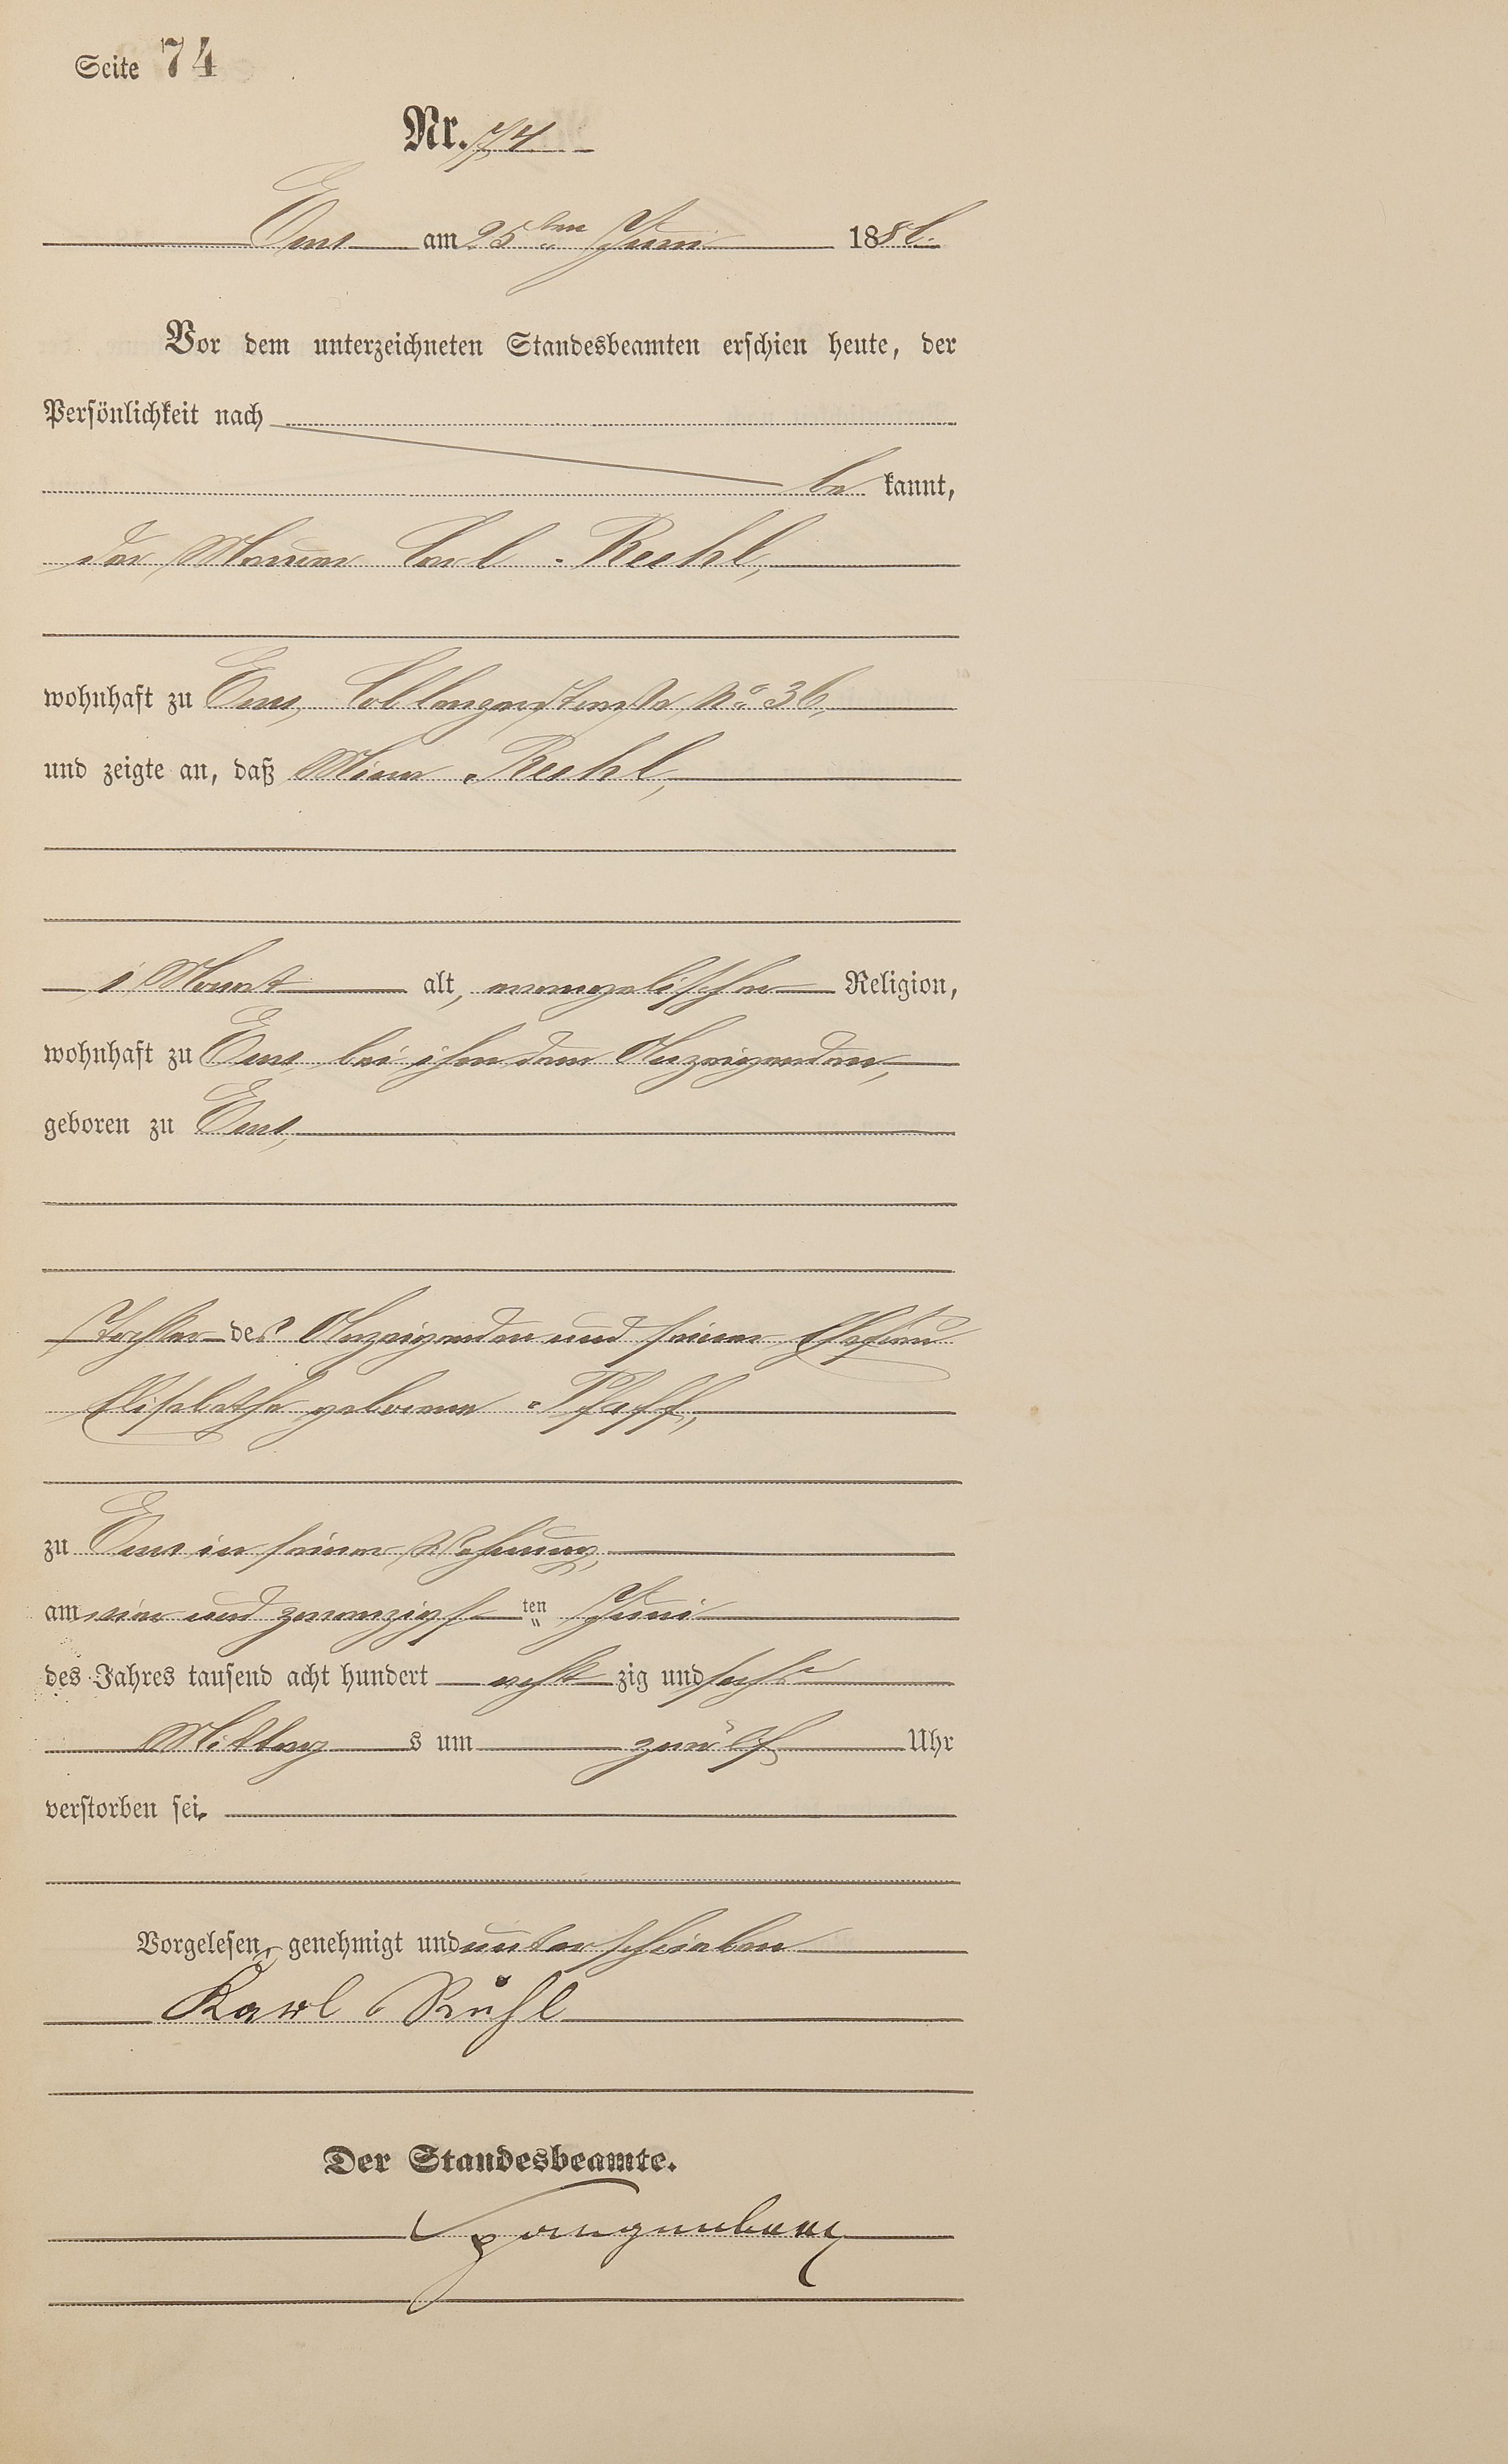 Seite 74
Nr. 74
Ems am 25ten Juni 1886.
Vor dem unterzeichneten Standesbeamten erschien heute, der
Persönlichkeit nach
be kannt,
der Maurer Carl Ruhl,
wohnhaft zu Ems, Coblenzerstraße No 36,
und zeigte an, daß Mina Ruhl,
1 Monat alt, evangelischer Religion,
wohnhaft zu Ems bei ihm dem Anzeigenden,
geboren zu Ems,
Tochter des Anzeigenden und seiner Ehefrau
Elisabethe geborene Pfaff,
zu Ems in seiner Wohnung,
am vier und zwanzigsten Juni
des Jahres tausend acht hundert acht zig und sechs
Mittag s um zwölf Uhr
verstorben sei.
Vorgelesen, genehmigt und unterschrieben
Karl Ruhl
Der Standesbeamte.
Spangenberg